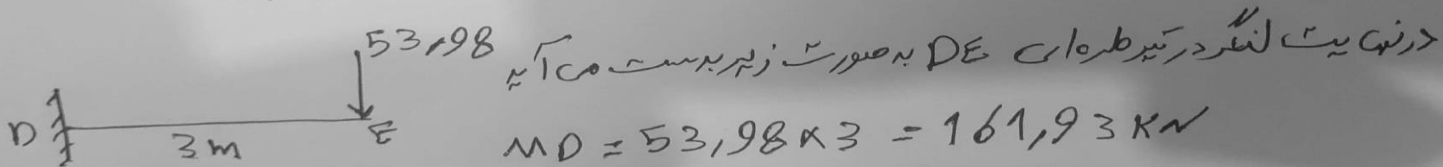 در نهایت لنگر در تیر طره‌ای DE به صورت زیر بدست می‌آید
53,98
D 3m E
MD = 53,98 × 3 = 161,93 KN